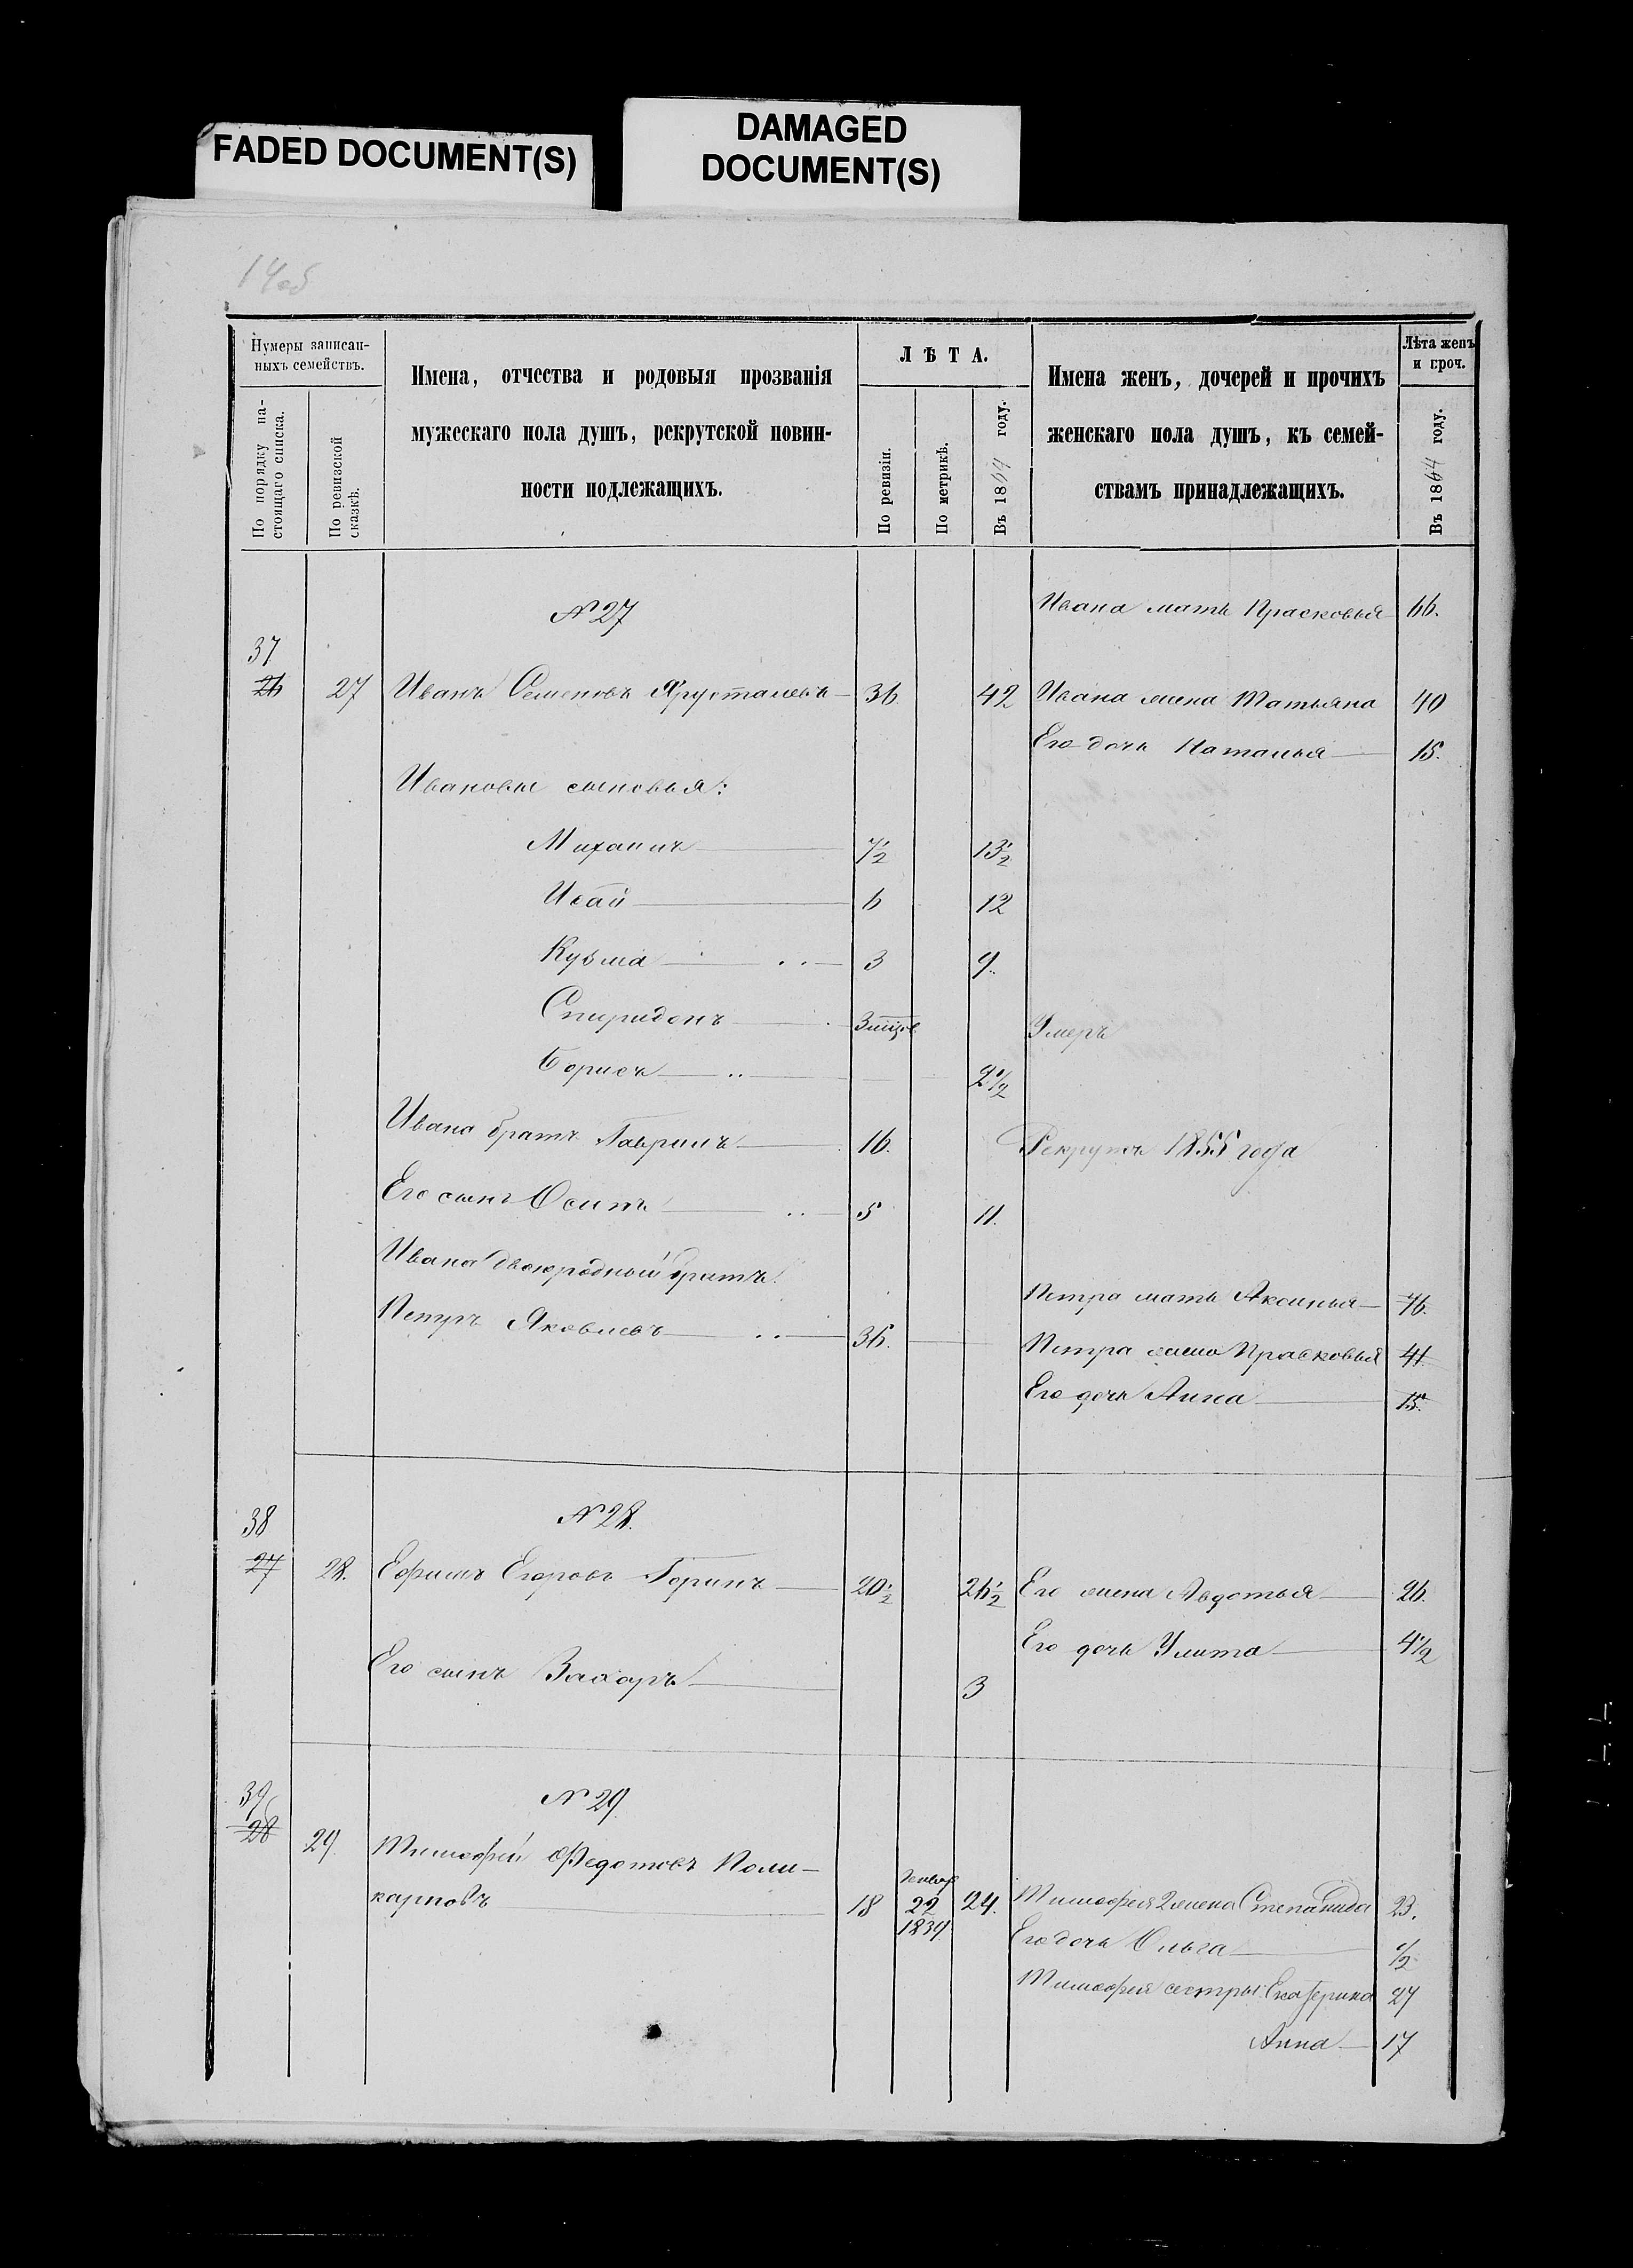 FADED DOCUMENT(S)
DAMAGED
DOCUMENT(S)
14об
Нумеры записан-
ныхъ семействъ.
По порядку на-
стоящаго списка.
По ревизской
сказкѣ.
Имена, отчества и родовыя прозванія
мужескаго пола душъ, рекрутской повин-
ности подлежащихъ.
ЛѢТА.
По ревизіи.
По метрикѣ.
Въ 1864 году.
Имена женъ, дочерей и прочихъ
женскаго пола душъ, къ семей-
ствамъ принадлежащихъ.
Лѣта женъ
и проч.
Въ 1864 году.
№ 27 Ивана мать Прасковья 66.
37
26 27 Иванъ Семеновъ Хрусталевъ 36. 42 Ивана жена Татьяна 40
Его дочь Наталья 15.
Ивановы сыновья:
Михаилъ 7½ 13½
Исай 6 12
Кузьма 3 9.
Спиридонъ Умеръ
Борисъ 2½
Ивана братъ Гаврилъ 16. Рекрутъ 1855 года
Его сынъ Осипъ 5 11.
Ивана двоюродный братъ
Петра мать Аксинья 76.
Петръ Яковлевъ 36.
Петра жена Прасковья 41
Его дочь Анна 15.
38 № 28.
27 28. Ефимъ Егоровъ Горинъ 20½ 26½ Его жена Авдотья 26.
Его дочь Улита 4½
Его сынъ Захаръ 3
39 № 29.
28 29. Тимофей Федотовъ Поли-
карповъ 18 Январ 22 1839 24. Тимофея 2 жена Степанида 23.
Его дочь Ольга ½
Тимофея сестры: Екатерина 27
Анна 17